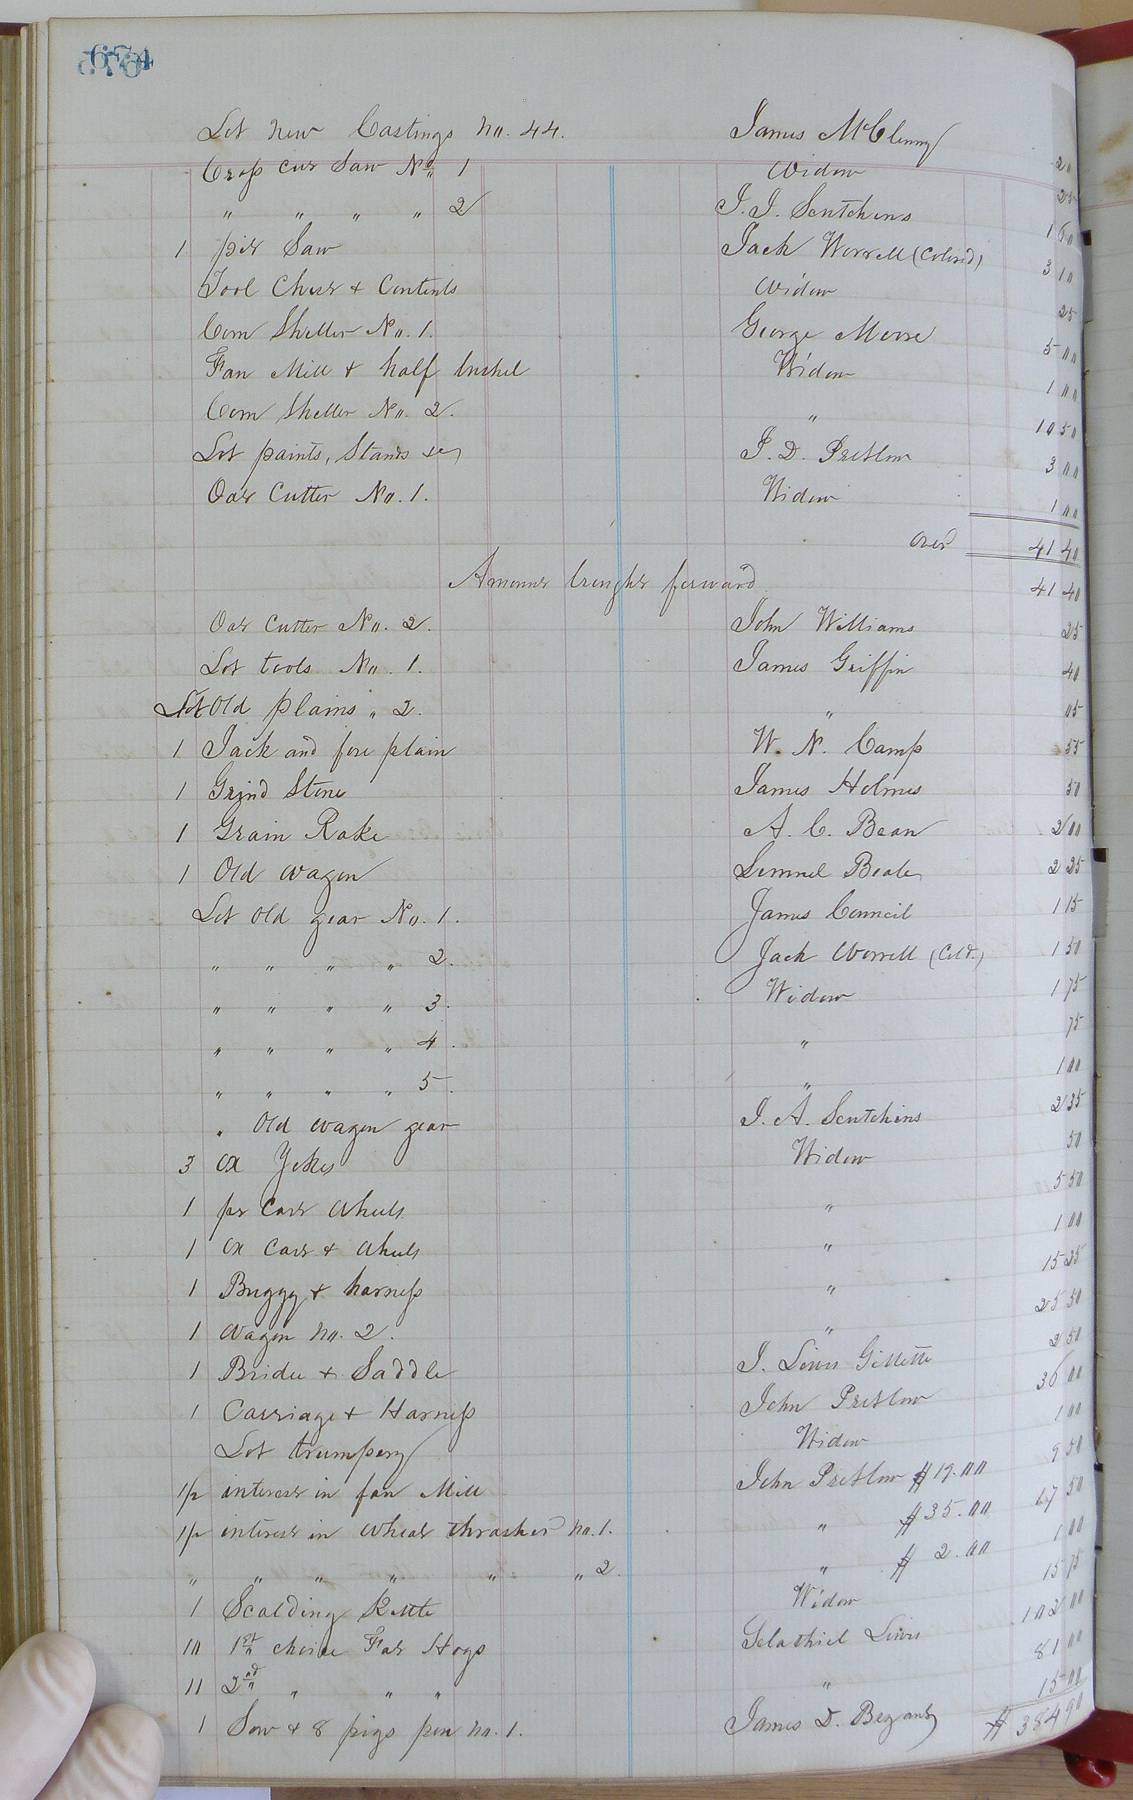 Lot new Castings No. 44. James McClenny 20
Cross cut Saw No. 1 Widow 25
" " " " 2 J. J. Scutchins 1 60
1 pit Saw Jack Worrell (Colored) 3 10
Tool Chest & Contents Widow 25
Corn Sheller No. 1. George Moore 5 00
Fan Mill & half bushel Widow 1 00
Corn Sheller No. 2. " 10 50
Lot paints, Stands &c J. D. Pretlow 3 00
Oat Cutter No. 1. Widow 1 00
over 41 40
Amount brought forward 41 40
Oat Cutter No. 2. John Williams 25
Lot tools No. 1. James Griffin 40
Lot Old plains " 2. " 05
1 Jack and fore plain W. N. Camp 55
1 Grind Stone James Holmes 50
1 Grain Rake A. C. Bean 2 00
1 Old wagon Lemuel Beale 2 25
Lot old gear No. 1. James Council 1 15
" " " " 2. Jack Worrell (Cold.) 1 50
" " " " 3. Widow 1 75
" " " " 4. " 75
" " " " 5. " 1 00
" Old wagon gear J. A. Scutchins 2 35
3 ox Yokes Widow 50
1 pr Cart wheels " 5 50
1 ox Cart & wheels " 1 00
1 Buggy & harness " 15 25
1 wagon No. 2. " 25 50
1 Bridle & Saddle J. Lewis Gillette 2 50
1 Carriage & Harness John Pretlow 36 00
Lot trumpery Widow 1 00
1/2 interest in fan Mill John Pretlow $19.00 9 50
1/2 interest in wheat thrasher No. 1. " $35.00 17 50
" " " " " " 2. " $2.00 1 00
1 Scalding Kettle Widow 15 75
10 1st choice Fat Hogs Selathiel Lewis 102 00
11 2nd " " " " 81 00
1 Sow & 8 pigs pen No. 1. James D. Bryant 15 00
$384 90